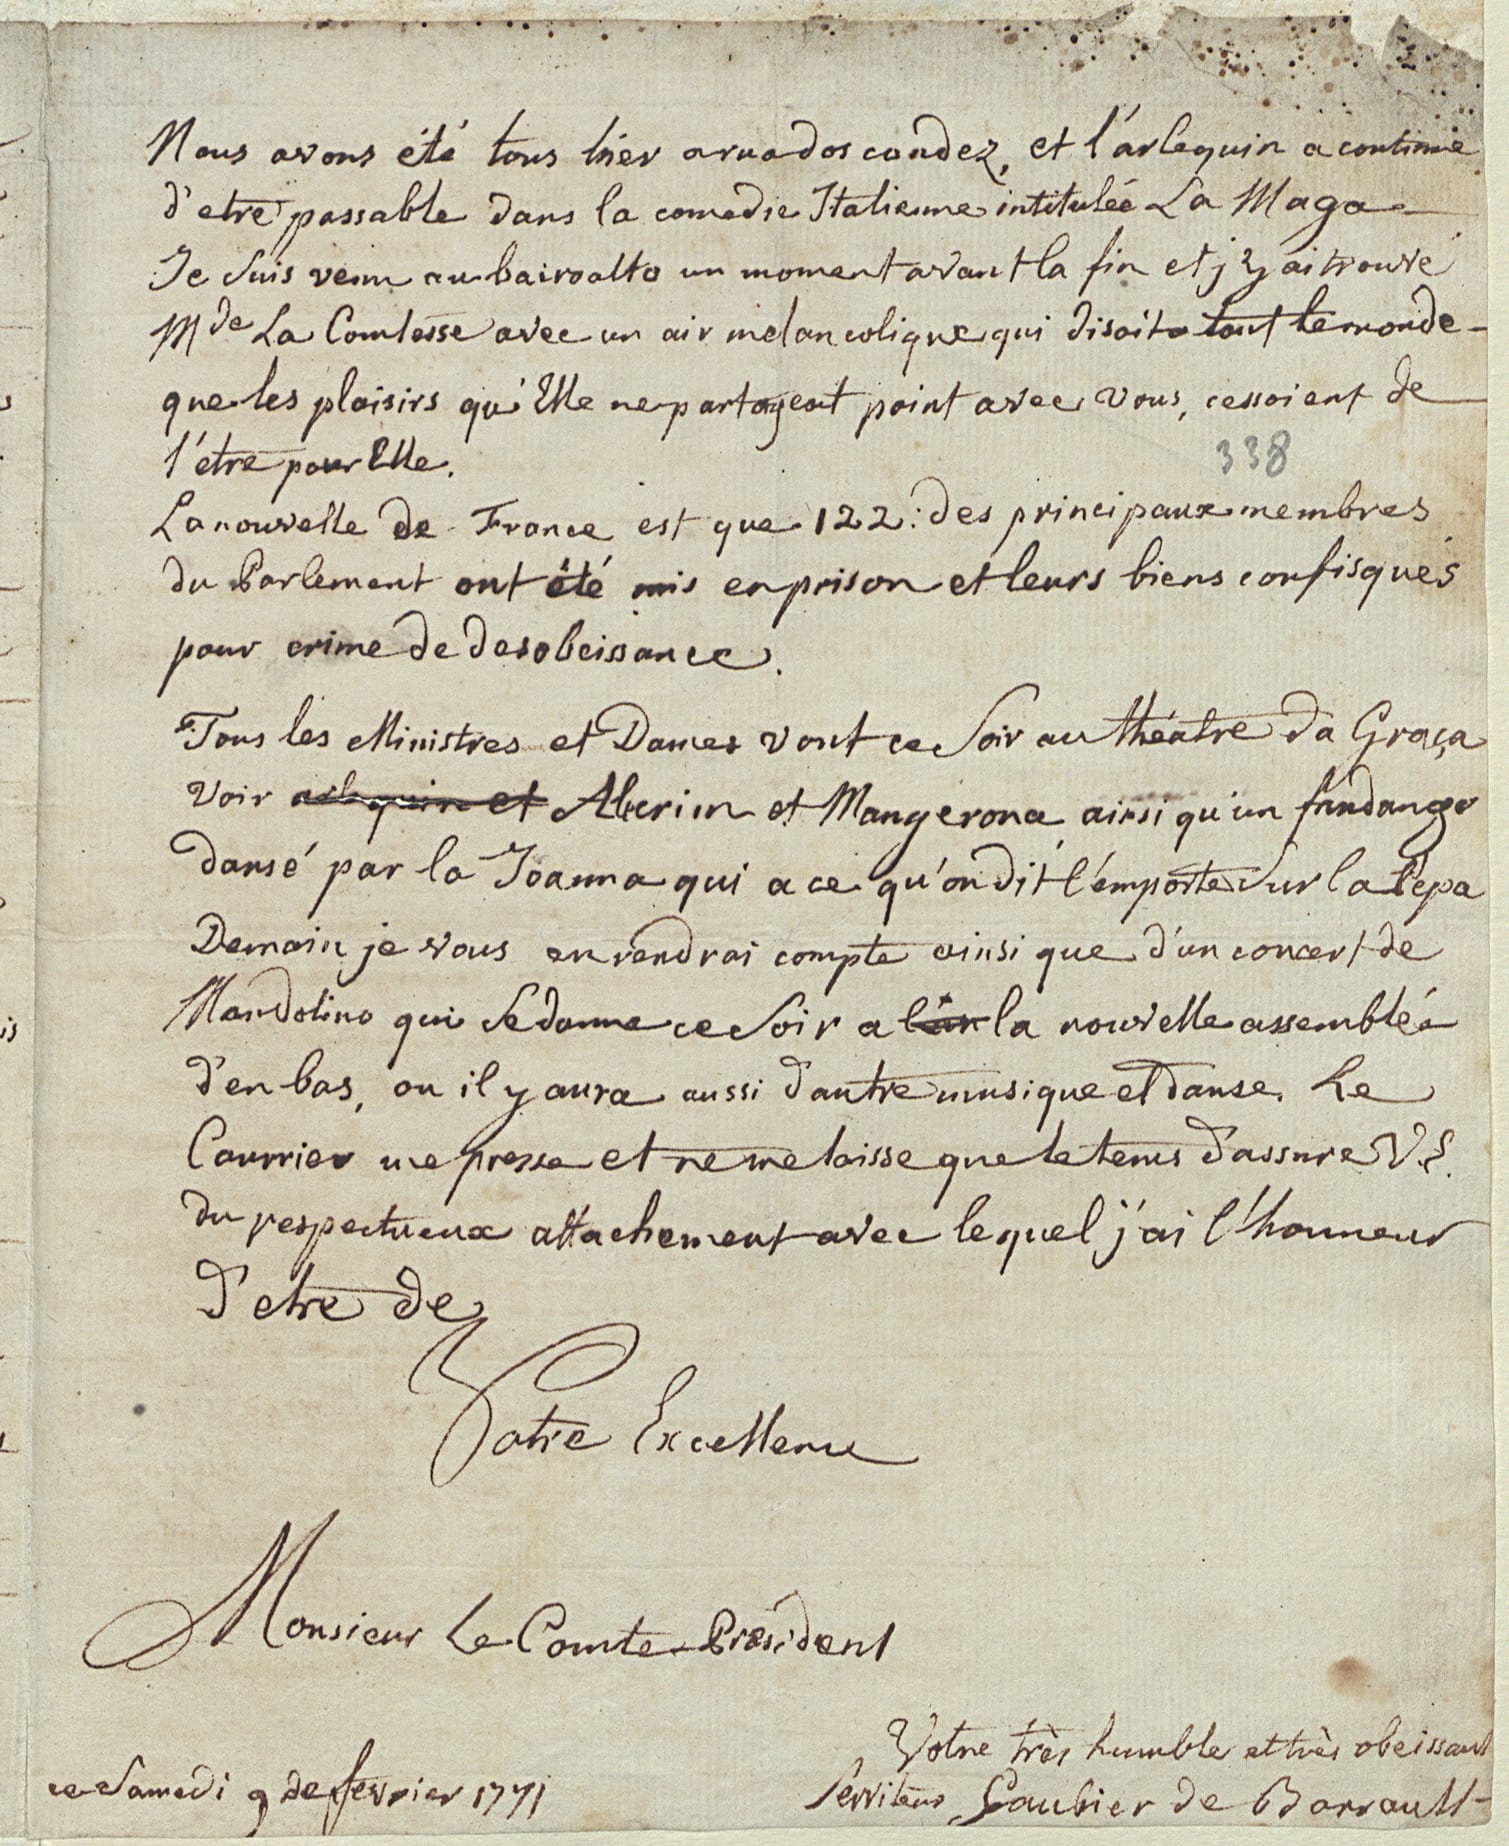 Nous avons été tous hier a rua dos condez, et l'arlequin a continué
d'etre passable dans la comedie Italienne intitulée La Maga
Je suis venu au bairoalto un moment avant la fin et j'y ai trouvé
Mde La Comtesse avec un air melancolique qui disoit a tout le monde
que les plaisirs qu'Elle ne partageoit point avec vous, cessoient de
l'etre pour Elle.
338
La nouvelle de France est que 122: des principaux membres
du Parlement ont été mis en prison et leurs biens confisqués
pour crime de desobeissance.
Tous les Ministres et Dames vont ce soir au théatre da Graça
voir arlequin et Alecrim et Mangerona ainsi qu'un fandango
dansé par la Joanna qui a ce qu'on dit l'emporte sur la Pepa
Demain je vous en rendrai compte ainsi que d'un concert de
Mandolino qui se donne ce soir a la nouvelle assemblée
d'en bas, ou il y aura aussi d'autre musique et danse. Le
Courrier me presse et ne me laisse que le tems d'assure V.E.
du respectueux attachement avec lequel j'ai l'honneur
D'etre de
Votre Excellence
Monsieur Le Comte Président
Votre très humble et très obeissant
ce Samedi 9 de fevrier 1771
Serviteur Gaubier de Barrault